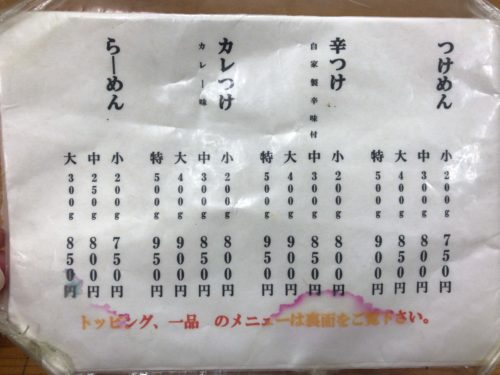 つけめん
小 200g 750円
中 300g 800円
大 400g 850円
特 500g 900円
辛つけ
自家製辛味付
小 200g 800円
中 300g 850円
大 400g 900円
特 500g 950円
カレつけ
カレー味
小 200g 800円
中 300g 850円
大 400g 900円
特 500g 950円
らーめん
小 200g 750円
中 250g 800円
大 300g 850円
トッピング、一品 のメニューは裏面をご覧下さい。